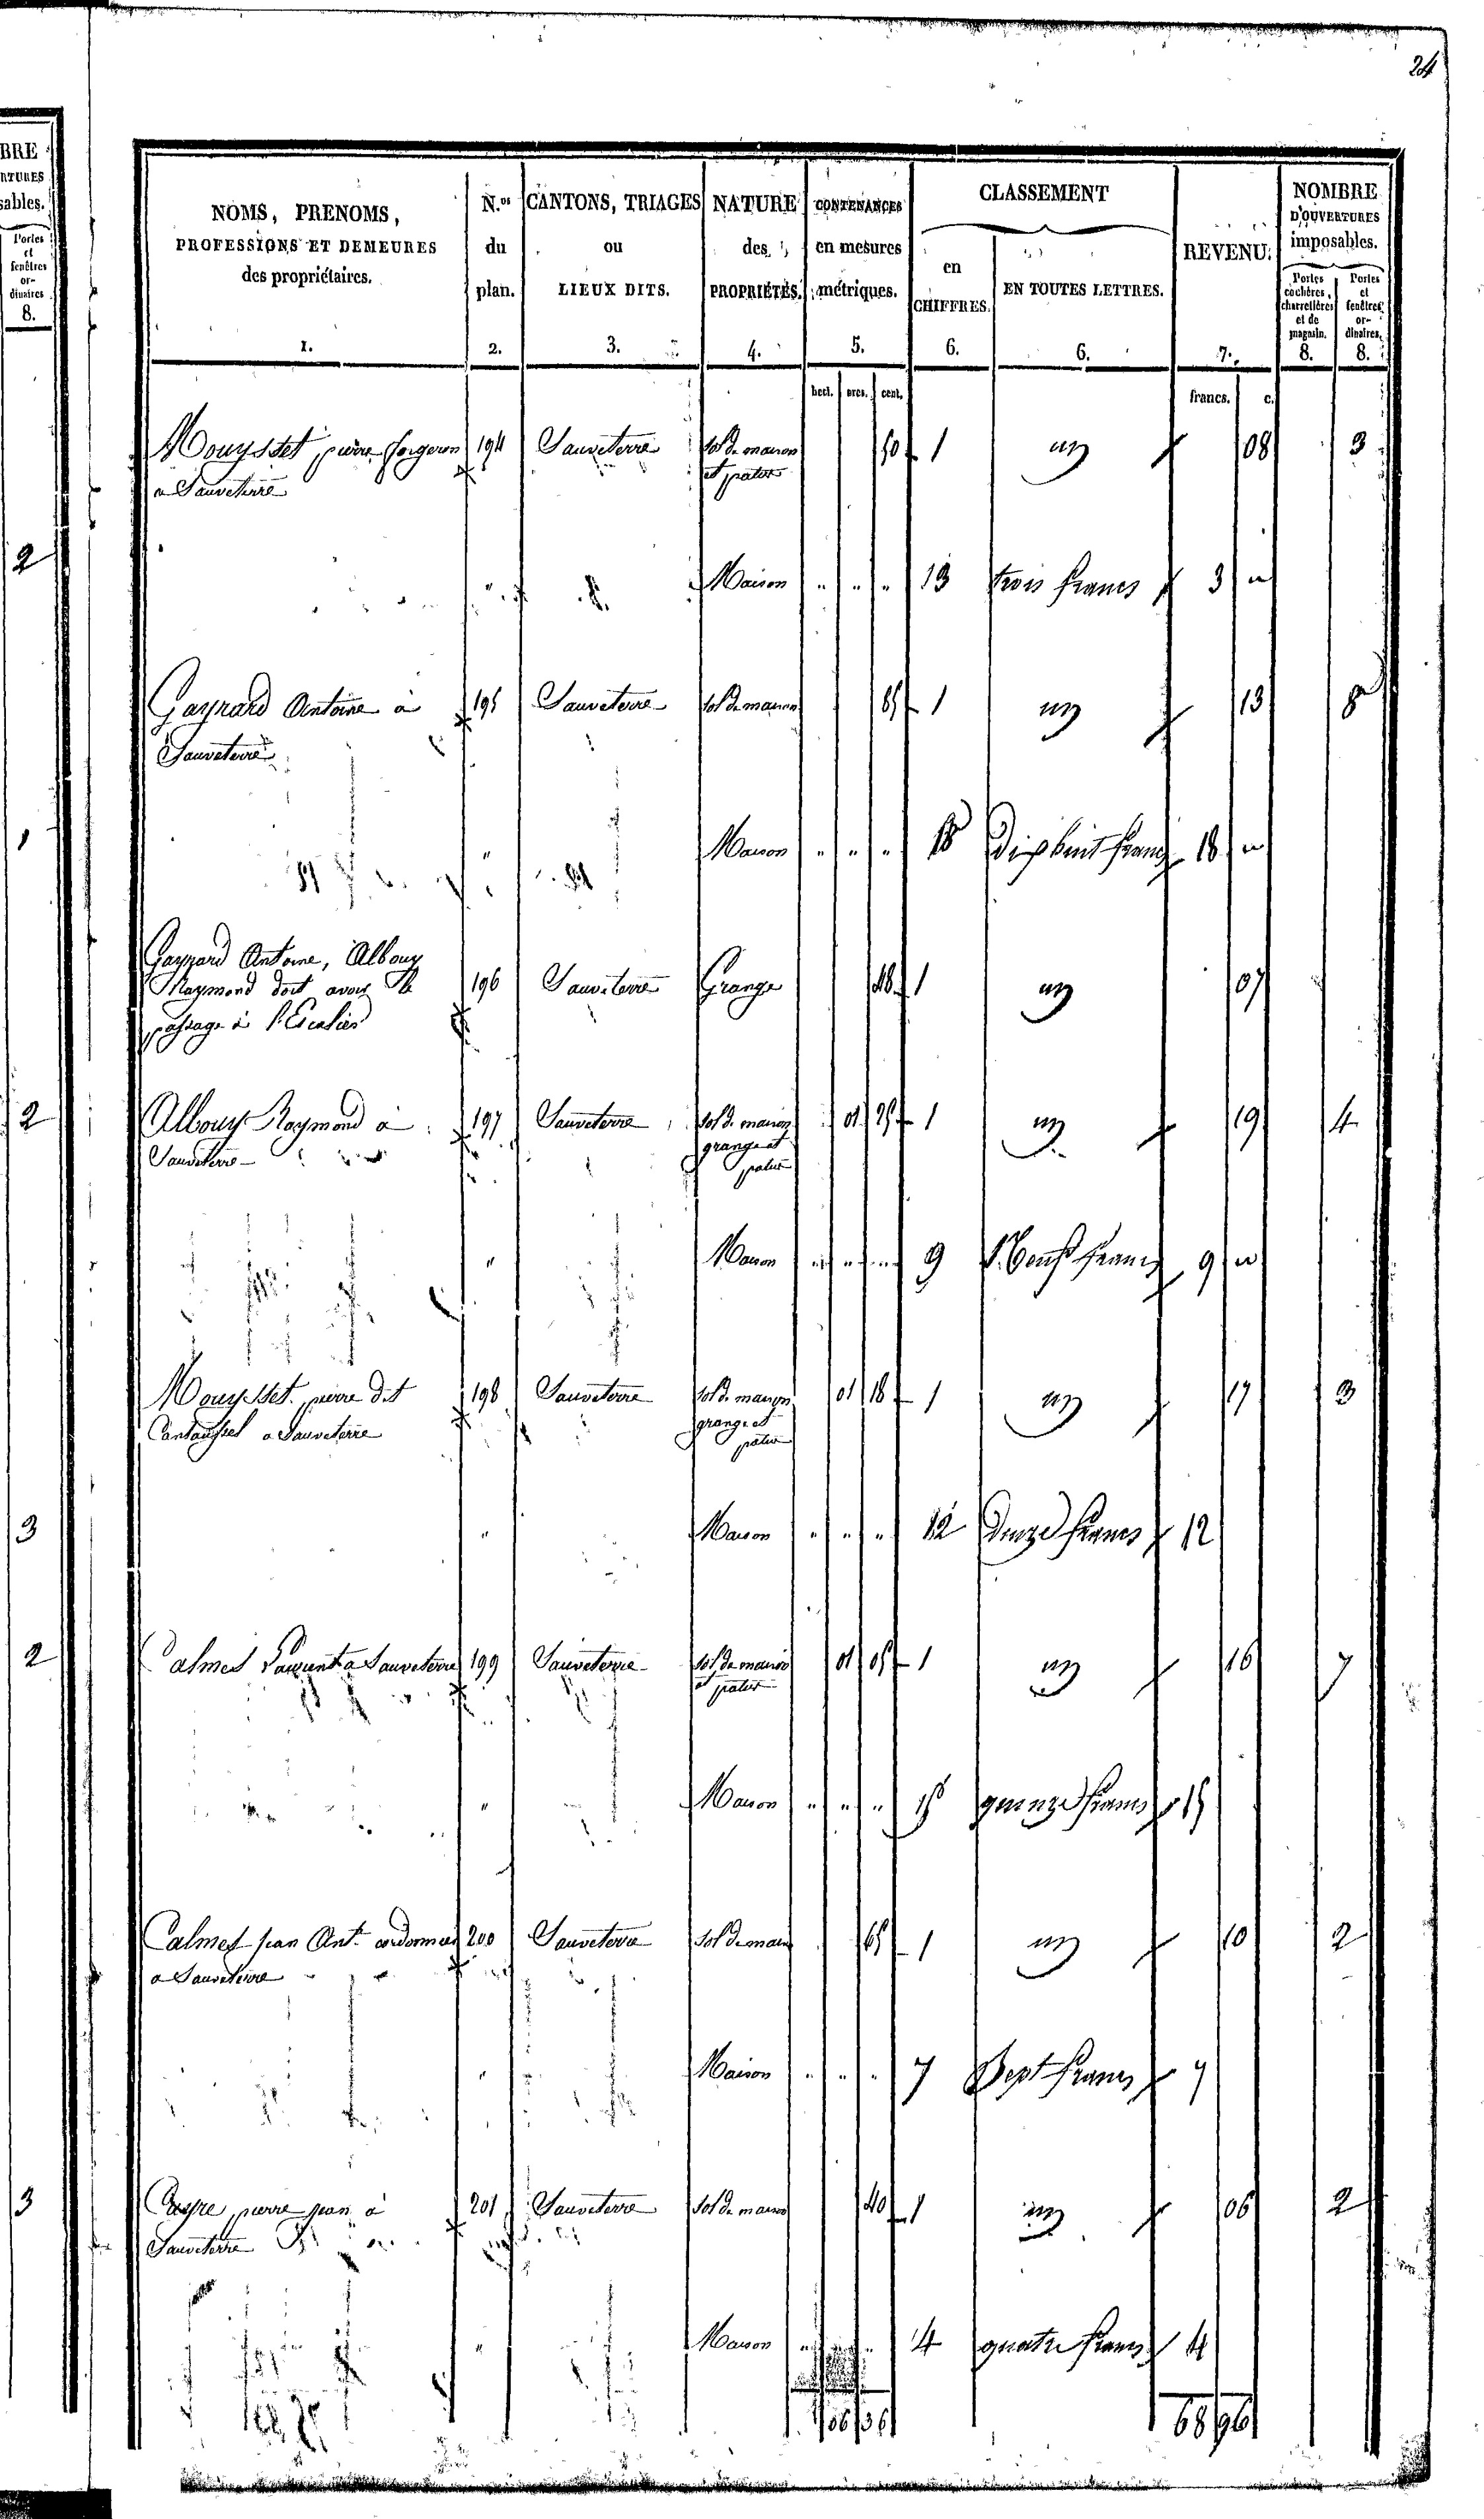 24
BRE
RTURES
sables.
Portes
et
fenêtres
or-
dinaires
8.
2
1
2
3
2
3
NOMS, PRENOMS,
PROFESSIONS ET DEMEURES
des propriétaires.
1.
N.os
du
plan.
2.
CANTONS, TRIAGES
ou
LIEUX DITS.
3.
NATURE
des
PROPRIÉTÉS.
4.
CONTENANCES
en mesures
métriques.
5.
CLASSEMENT
en
CHIFFRES.
6.
EN TOUTES LETTRES.
6.
REVENU.
7.
NOMBRE
D'OUVERTURES
imposables.
Portes
cochères,
charretières
et de
magasin.
8.
Portes
et
fenêtres
or-
dinaires.
8.
hect. ares. cent. francs. c.
Mouysset pierre forgeron 194 Sauveterre sol de maison 50 1 un 08 3
a Sauveterre et patus
" Maison " " " 13 trois francs 3 "
Gaynard Antoine à 195 Sauveterre sol de maison 85 1 un 13 8
Sauveterre
" Maison " " " 18 Dix huit francs 18 "
Gaynard Antoine, Albouy
Raymond doit avoir le 196 Sauveterre Grange 48 1 un 07
passage à l'Escalier
Albouy Raymond à 197 Sauveterre sol de maison 01 25 1 un 19 4
Sauveterre grange et
patus
" Maison " " " 9 Neuf francs 9 "
Mouysset pierre dit 198 Sauveterre sol de maison 01 18 1 un 17 3
a Sauveterre grange et
patus
" Maison " " " 12 Douze francs 12
Calmes Laurent a Sauveterre 199 Sauveterre sol de maison 01 05 1 un 16 7
et patus
" Maison " " " 15 quinze francs 15
Calmes jean Ant. cordonnier 200 Sauveterre sol de maison 65 1 un 10 2
a Sauveterre
" Maison " " " 7 Sept francs 7
pierre jean à 201 Sauveterre sol de maison 40 1 un 06 2
Sauveterre
" Maison " " " 4 quatre francs 4
06 36 68 96